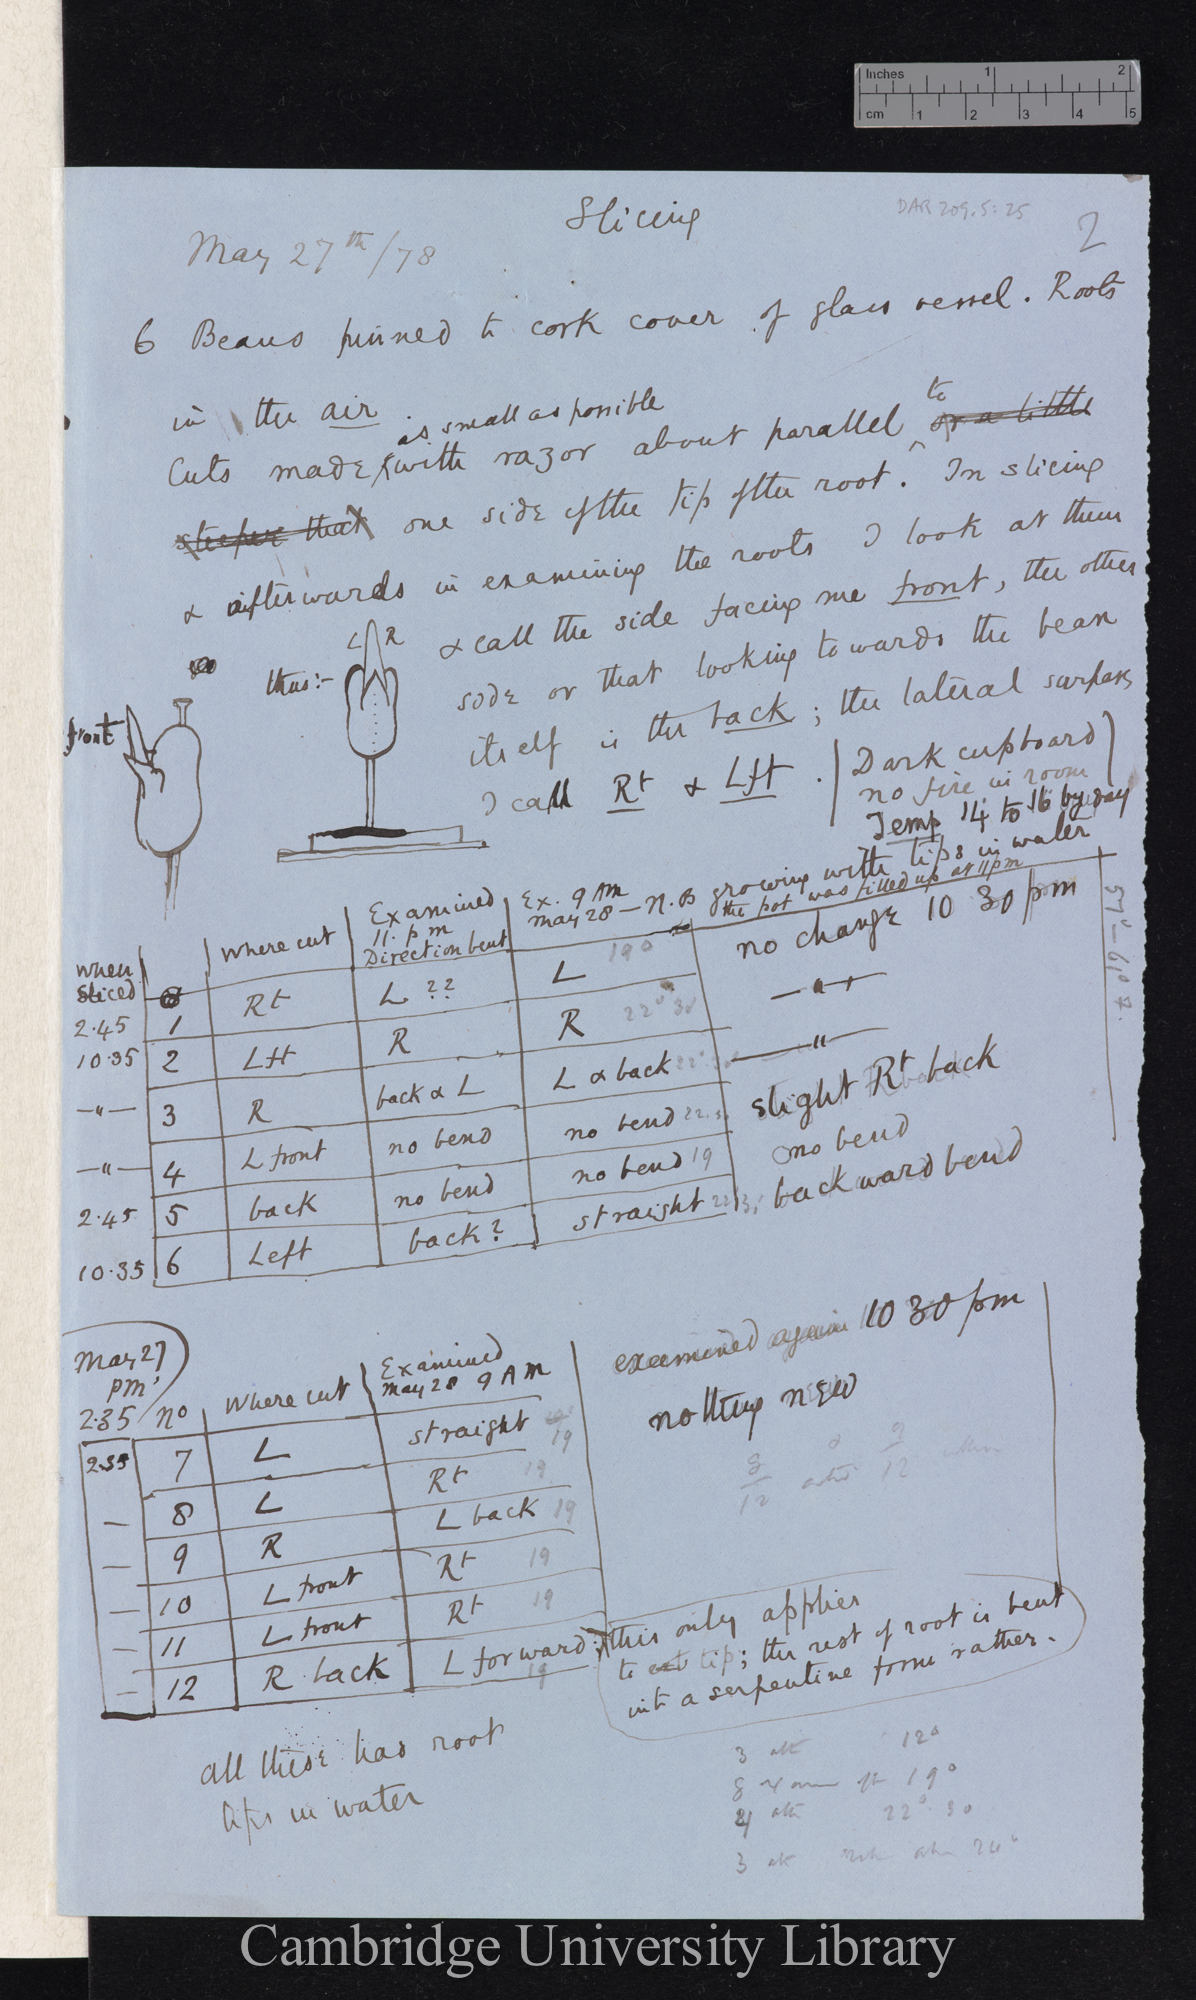 Inches 1 2
cm 1 2 3 4 5
Slicing
DAR 209.5:25
2
May 27th/78
6 Beans pinned to cork cover of glass vessel. Roots
in the air
as small as possible
Cuts made with razor about parallel to or a little
steeper that one side of the tip of the root. In slicing
& afterwards in examining the roots I look at them
& call the side facing me front, the other
side or that looking towards the bean
itself is the back; the lateral surfaces
I call Rt & Lft.
L R
thus:-
front
Dark cupboard
no fire in room
Temp 14 to 16 by day
N.B growing with tips in water
the pot was filled up at 11pm
57° - 61° F.
when sliced | | Where cut | Examined 11. p m Direction bent | Ex. 9 AM May 28 | no change 10 30 pm
2.45 | 1 | Rt | L ?? | L 19° | no change 10 30 pm
10.35 | 2 | Lft | R | R 22° 30 | —"—
—"— | 3 | R | back & L | L & back 22° 30 | —"—
—"— | 4 | L front | no bend | no bend 22.30 | slight Rt back
2.45 | 5 | back | no bend | no bend 19 | no bend
10.35 | 6 | Left | back? | straight 22 30 | backward bend
May 27
PM
2.35 | No | Where cut | Examined May 28 9 AM | examined again 10 30 pm
2.35 | 7 | L | straight 19 | nothing new
— | 8 | L | Rt 19
— | 9 | R | L back 19
— | 10 | L front | Rt 19
— | 11 | L front | Rt 19
— | 12 | R back | L forward 19
8/12 9/12
this only applies
to tip; the rest of root is bent
into a serpentine form rather.
all these had root
tips in water
3 12°
8 19°
22° 30
3 24°
Cambridge University Library